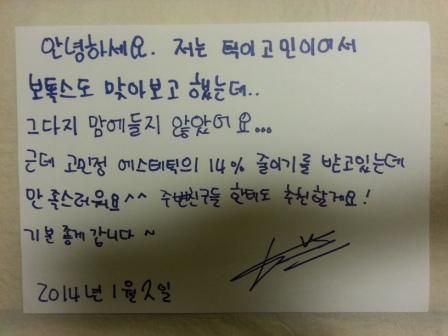 안녕하세요. 저는 턱이고민이여서
보톡스도 맞아보고 했는데..
그다지 맘에들지 않았어요...
근데 고민정 에스테틱의 14% 줄이기를 받고있는데
만족스러워요^^ 주변친구들 한테도 추천할게요!
기분 좋게 갑니다~
2014년 1월 2일